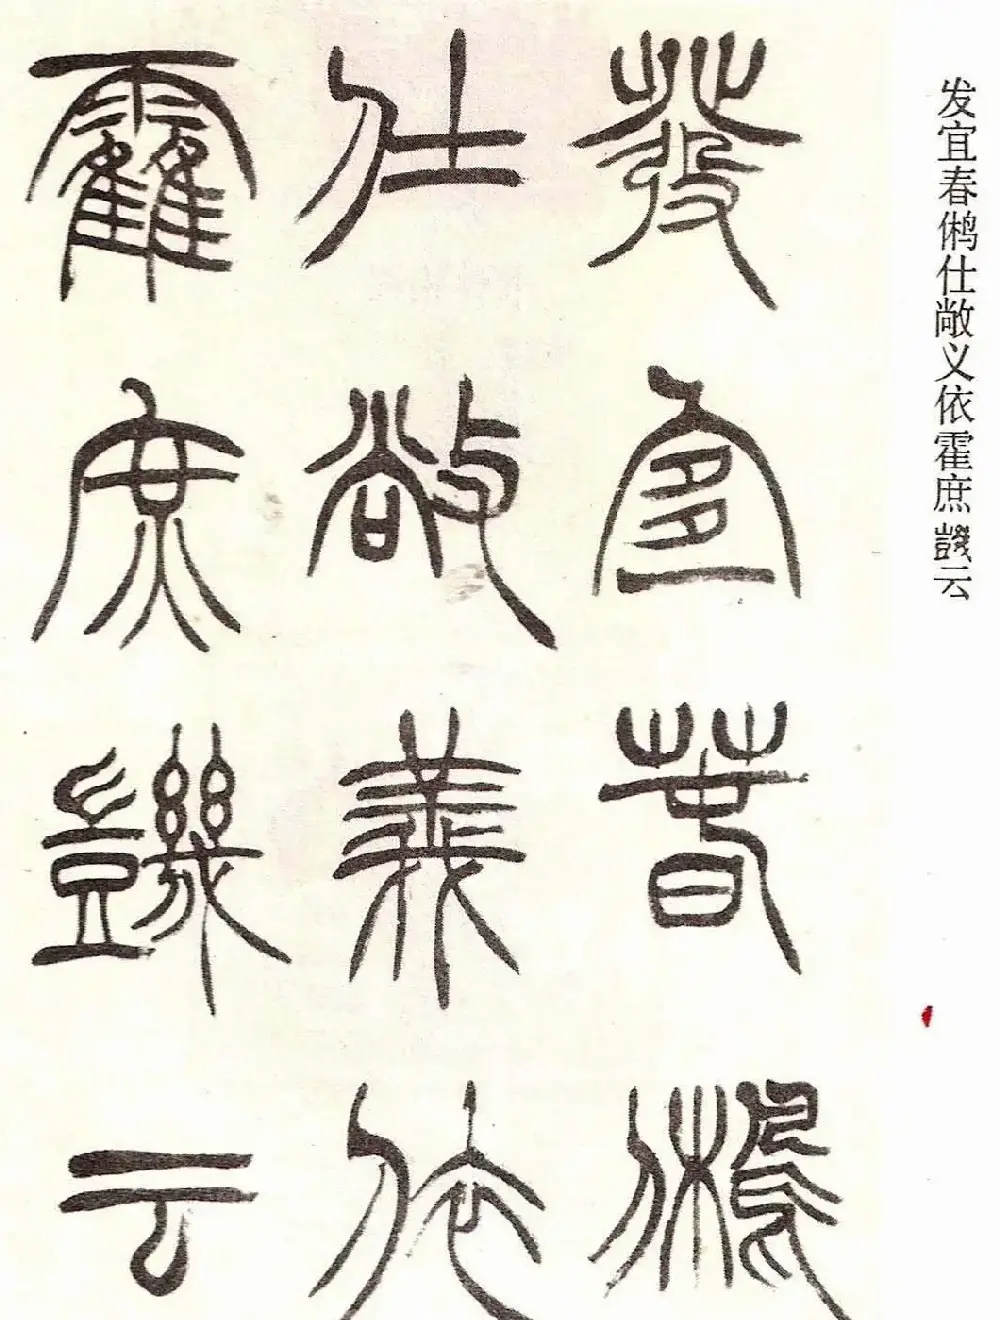 发宜春鸺仕敞义依霍庶云
發宜春鵂
仕敞義依
霍庶云